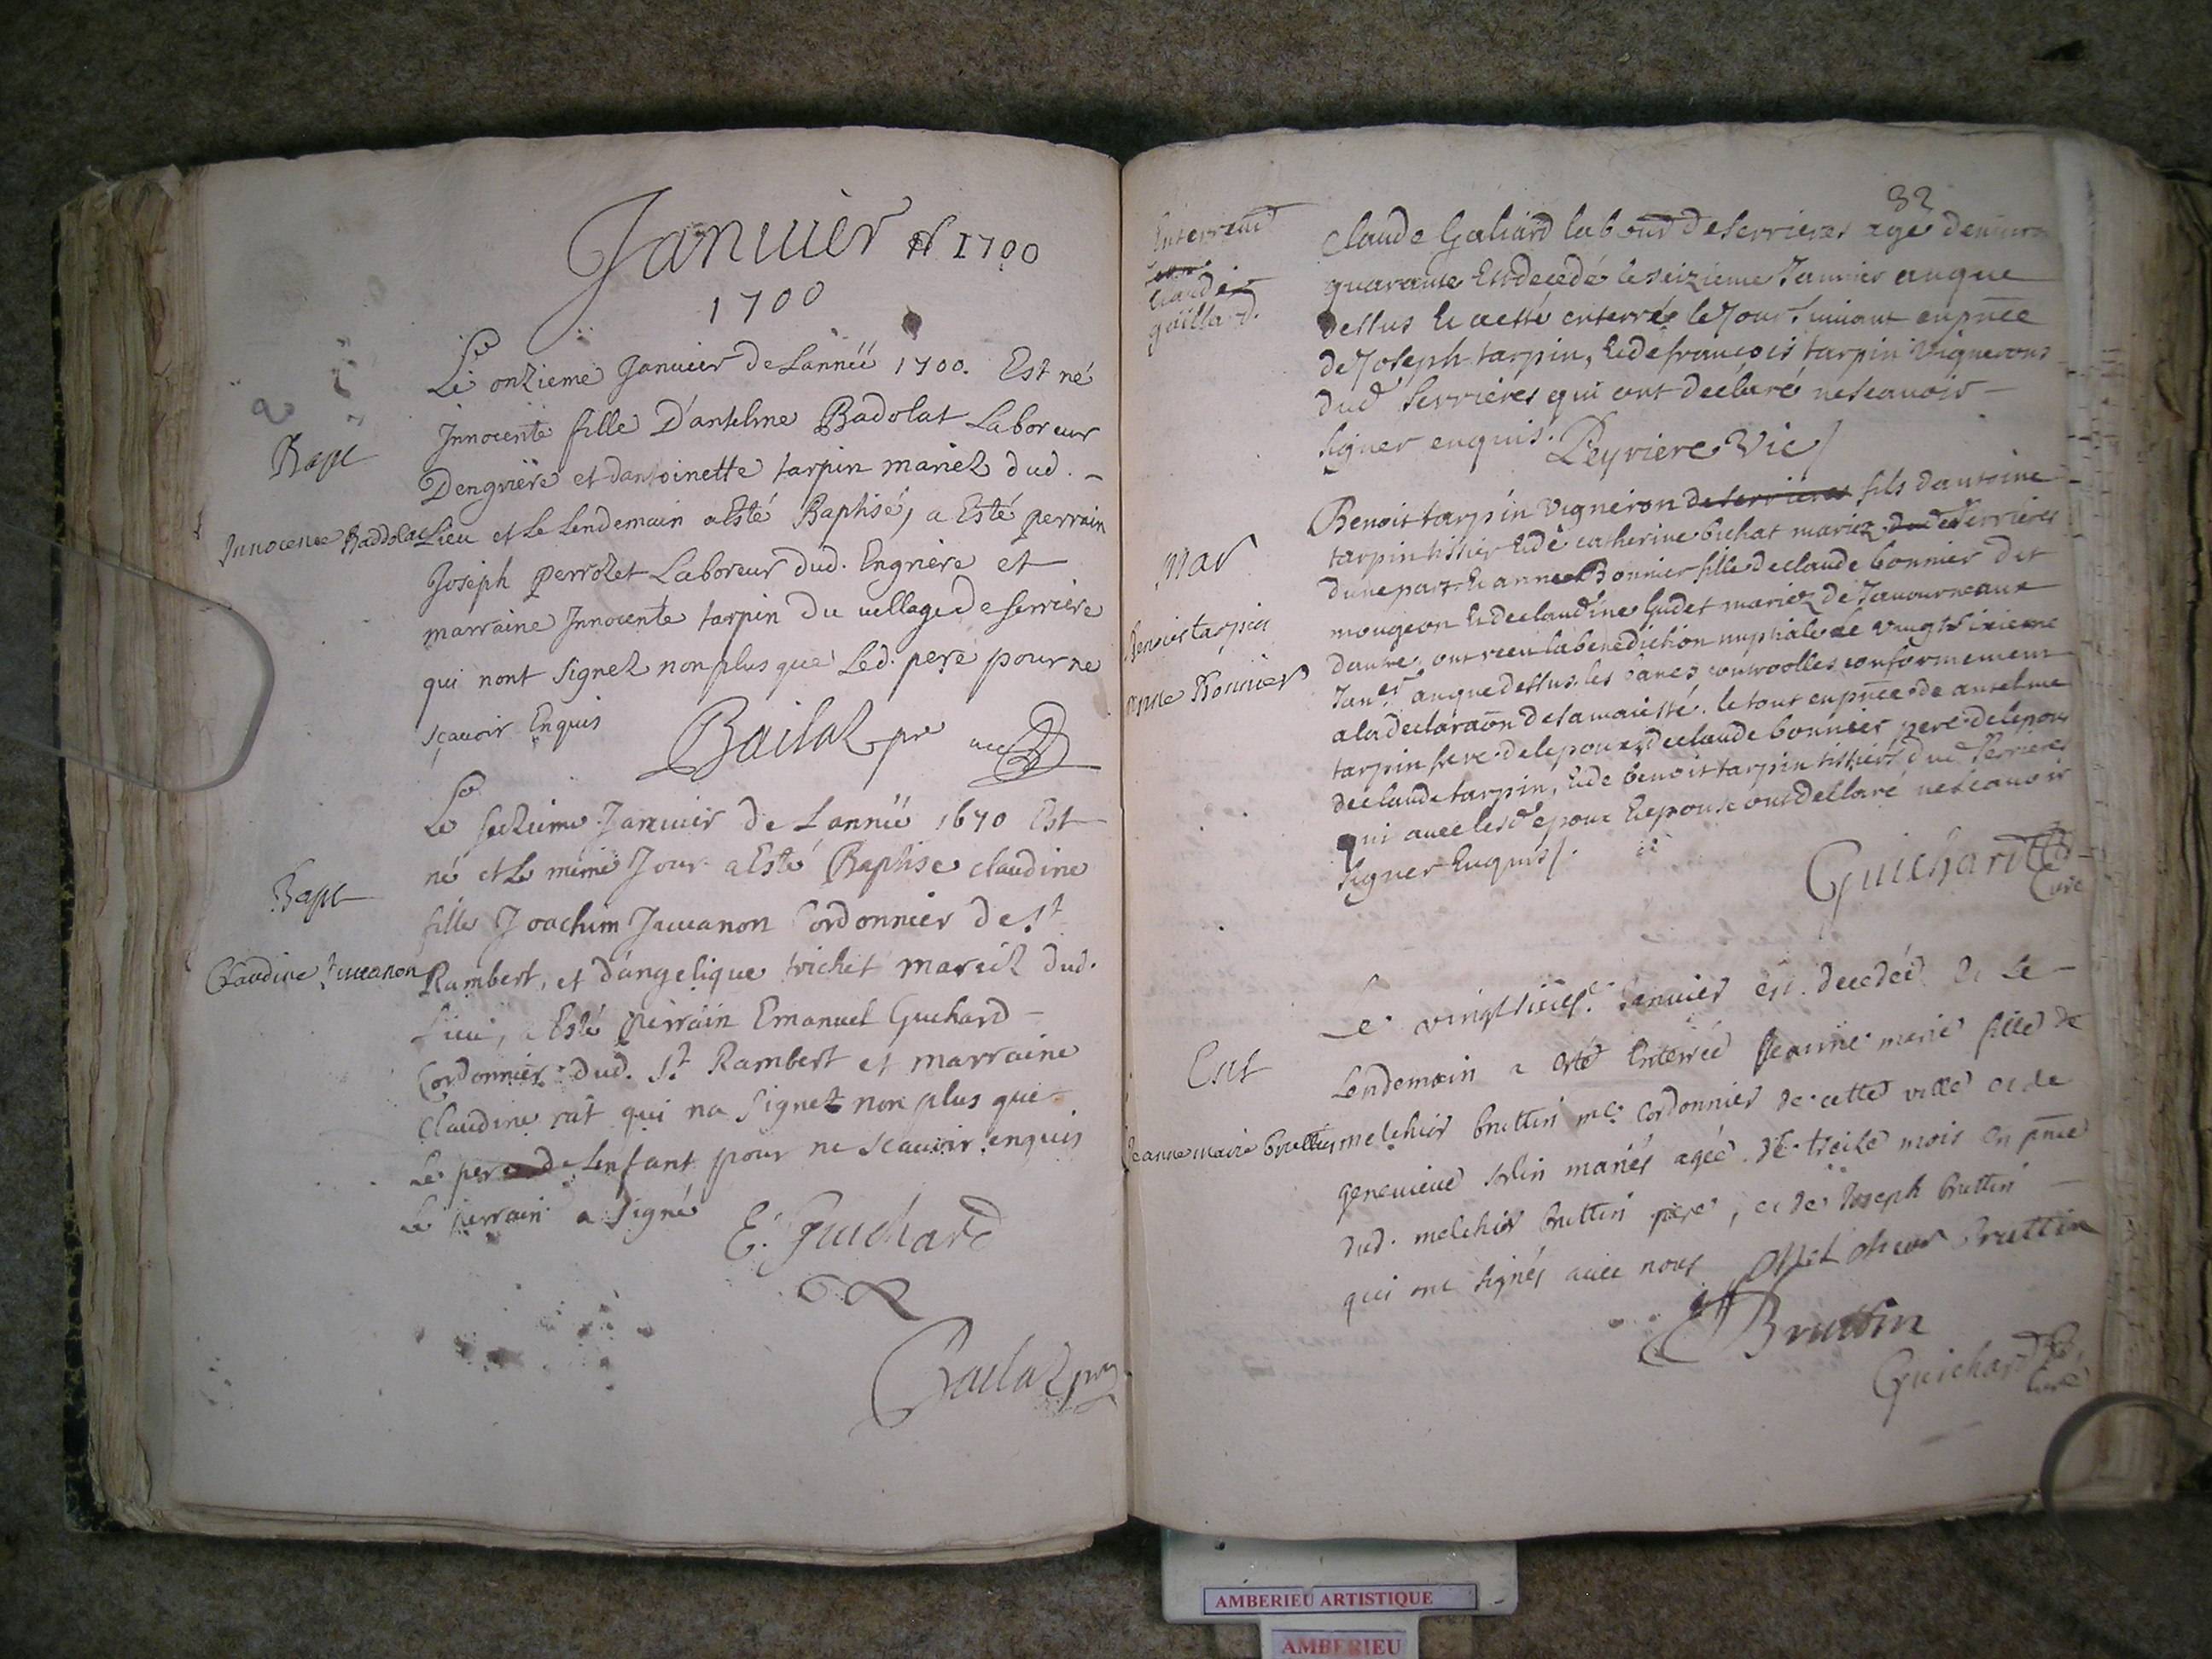 Januier 1700
1700
Bapt
Innocente Baddolat
Le onzieme Januier de Lannëë 1700. Est né
Innocente fille D'antelme Badolat Laboreur
Dengriere et dantoinette tarpin mariez dud.
Lieu et le Lendemain a Esté Baptisé, a Esté perrain
Joseph perrozet Laboreur dud. Engriere et
marraine Innocente tarpin du uillage de serriere
qui nont signez non plus que Led. pere pour ne
sçauoir Enquis Bailat pre
Bapt
Claudine Juuanon
Le seizieme Januier de Lannëe 1670 Est
né et le méme Jour a Esté Baptise claudine
fille Joachim Juuanon Cordonnier de St
Rambert, et d'angelique trichet mariez dud.
Lieu, a Esté perrain Emanuel Guchard
Cordonnier dud. St Rambert et marraine
Claudine rat qui na signez non plus que
Le pere de Lenfant pour ne scauoir enquis
Le perrain a signé E. Guichard
Bailat pre
32
Enterremt
Claude
gaillard.
Claude Galiard labour deserrieres agé denuiron
quarante Est decedé le seizieme Januier anque
dessus Et aesté enterré le Jour suiuant enpnce
de Joseph tarpin, Et de francois tarpin vignerons
dud serrieres qui ont declaré nescauoir
signer enquis. Peyriere Vic
Mar
Benoist tarpin
anne Bonnier
Benoit tarpin vigneron deserrieres fils dantoine
tarpin tissier Et de catherine bichat mariez dud serrieres
dunepart Et anne Bonnier fille de claude bonnier dit
mougeon Et de claudine Gudet mariez de Jauourneaux
dautre, ont receu la benediction nuptiale le vingtsixieme
Janer anquedessus. les bancs controolles conformement
a la declaraon desa maiesté. le tout enpnce de anselme
tarpin frere delepoux, declaude bonnier pere delepouse
declaude tarpin, Et de benoit tarpin tissiers dud serrieres
qui auec lesd epoux Et epouse ont dellaré nescauoir
signer Enquis.
Guichard
Curé
Ent
Jeanne marie bruttin
Le vingt Januier est decedée et le
Lendemain a esté Enterrée Jeanne marie fille de
melchior bruttin me. Cordonnier de cette ville et de
geneuieue mariés agée de treize mois en pnce
dud. melchior bruttin pere, et de Joseph bruttin
qui ont signés auec nous Melchior Bruttin
Bruttin
Guichard
Curé
AMBERIEU ARTISTIQUE
AMBERIEU